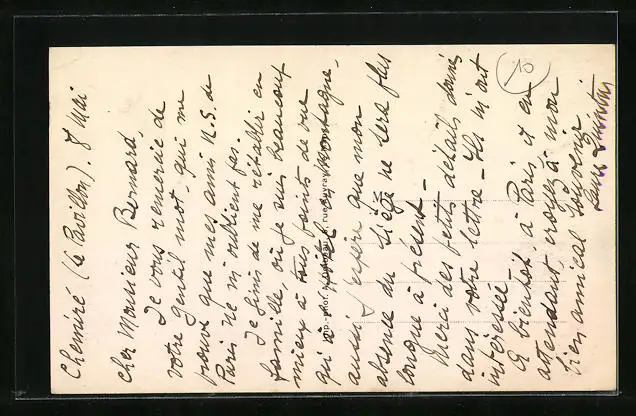 Chemiré (Le Pavillon). 8 Mai
Cher Monsieur Bernard,
Je vous remercie de
votre gentil mot, qui me
prouve que mes amis N.S. de
Paris ne m'oublient pas.
Je finis de me rétablir en
famille, où je suis beaucoup
mieux à tous points de vue
qu'à
aussi j'espère que mon
absence du siège ne sera plus
longue à présent -
Merci des petits détails donnés
dans votre lettre - Ils m'ont
intéressé
A bientôt à Paris, et en
attendant croyez à mon
bien amical souvenir
10